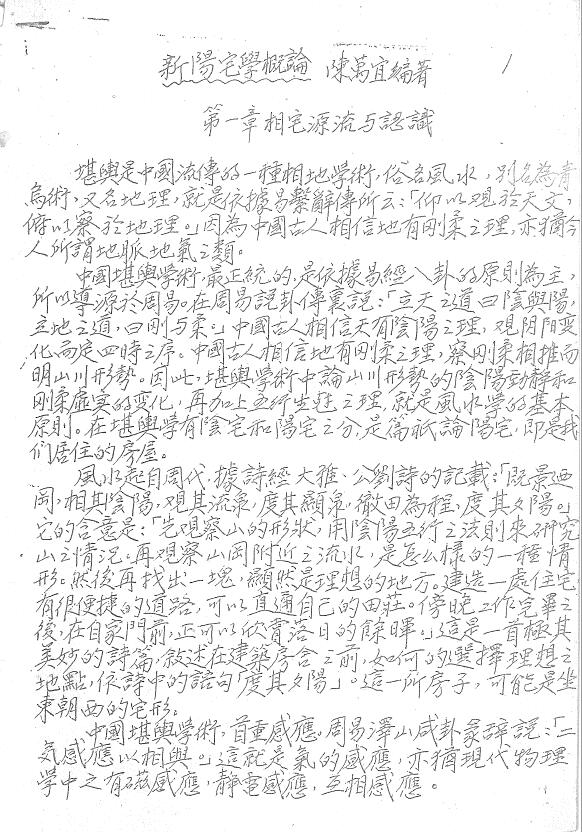 1
新陽宅學概論 陳萬宜編著
第一章相宅源流与認識
堪輿是中國流傳的一種相地學術，俗名風水，別名為青
烏術，又名地理，就是依據易繫辭傳所云：「仰以观於天文，
俯以察於地理。」因為中國古人相信地有剛柔之理，亦猶今
人所謂地脈地氣之類。
中國堪輿學術，最正統的，是依據易經八卦的原則為主，
所以導源於周易。在周易説卦傳裏説：「立天之道曰陰與陽，
立地之道，曰剛与柔。」中國古人相信天有陰陽之理，观阴阳变
化而定四時之序。中國古人相信地有剛柔之理，察剛柔相推而
明山川形勢。因此，堪輿學術中論山川形勢的陰陽動靜和
剛柔虛实的变化，再加上五行生尅之理，就是風水學的基本
原則。在堪輿學有陰宅和陽宅之分，是篇祇論陽宅，即是我
们居住的房屋。
風水起自周代，據詩經大雅、公劉詩的記載：「既景迺
岡，相其陰陽，观其流泉，度其顯泉，徹田為程，度其夕陽。」
它的含意是：「先观察山的形狀，用陰陽五行之法則來研究
山之情況。再观察山岡附近之流水，是怎么樣的一種情
形。然後再找出一塊，顯然是理想的地方。建造一處住宅
有很便捷的道路，可以直通自己的田莊。傍晚工作完畢之
後，在自家門前，正可以欣賞落日的餘暉。」這是一首極其
美妙的詩篇，敘述在建築房舍之前，如何的選擇理想之
地點，依詩中的語句「度其夕陽」。這一所房子，可能是坐
東朝西的宅形。
中國堪輿學術，首重感應。周易澤山咸卦彖辞説：「二
気感應以相與。」這就是氣的感應，亦猶現代物理
學中之有磁感應，靜電感應，互相感應。